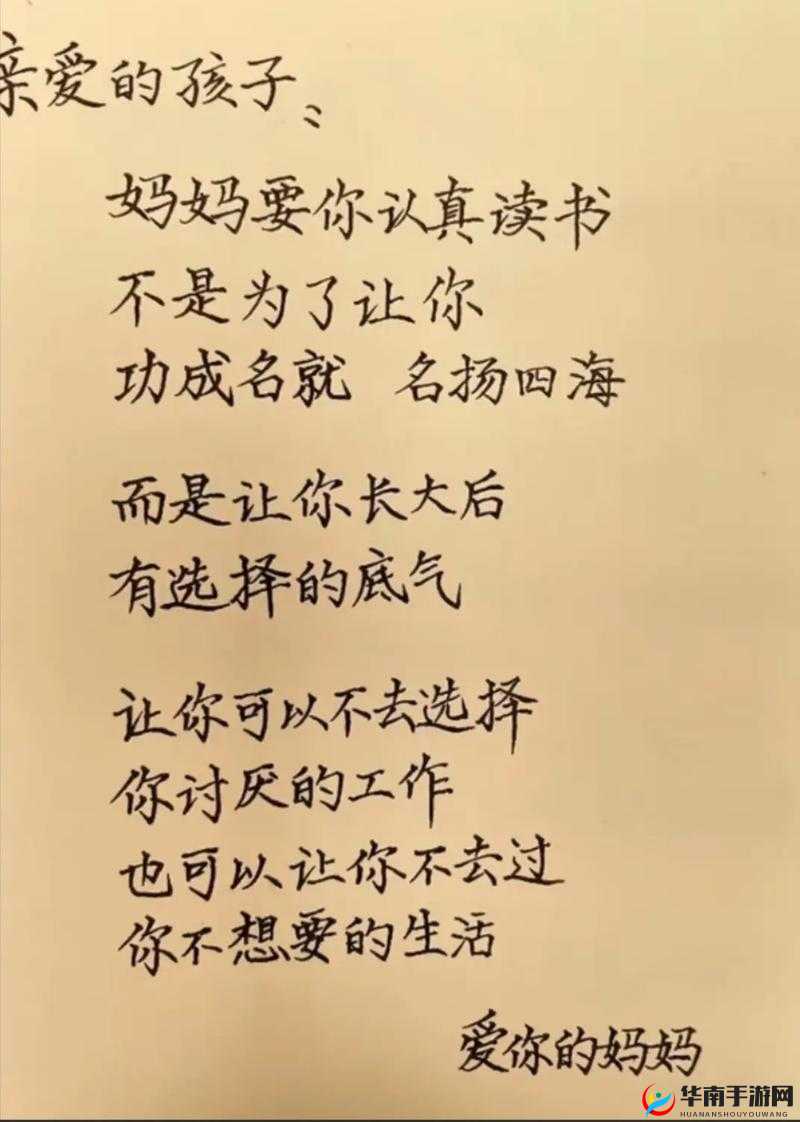 亲爱的孩子:
妈妈要你认真读书
不是为了让你
功成名就 名扬四海
而是让你长大后
有选择的底气
让你可以不去选择
你讨厌的工作
也可以让你不去过
你不想要的生活
爱你的妈妈
华南手游网
HUANANSHOUYOUWANG